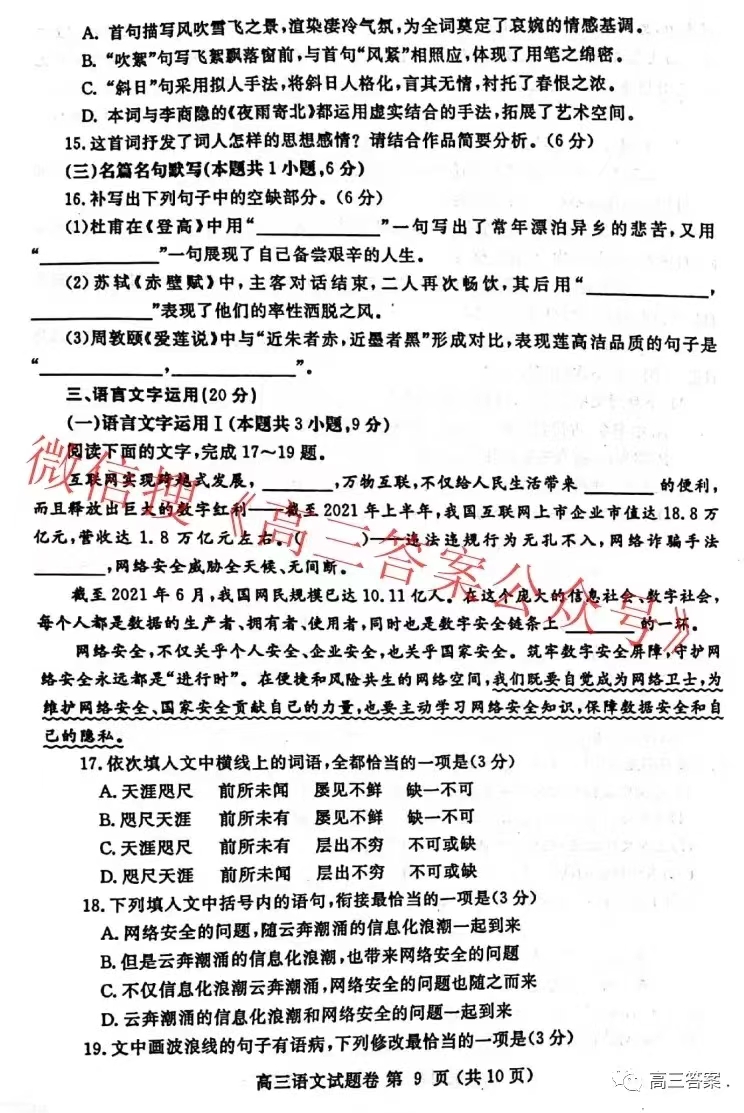 A. 首句描写风吹雪飞之景,渲染凄冷气氛,为全词奠定了哀婉的情感基调。
B. “吹絮”句写飞絮飘落窗前,与首句“风紧”相照应,体现了用笔之绵密。
C. “斜日”句采用拟人手法,将斜日人格化,言其无情,衬托了春恨之浓。
D. 本词与李商隐的《夜雨寄北》都运用虚实结合的手法,拓展了艺术空间。
15.这首词抒发了词人怎样的思想感情？请结合作品简要分析。(6分)
(三)名篇名句默写(本题共1小题,6分)
16.补写出下列句子中的空缺部分。(6分)
(1)杜甫在《登高》中用“____________”一句写出了常年漂泊异乡的悲苦,又用
“____________”一句展现了自己备尝艰辛的人生。
(2)苏轼《赤壁赋》中,主客对话结束,二人再次畅饮,其后用“____________,
____________”表现了他们的率性洒脱之风。
(3)周敦颐《爱莲说》中与“近朱者赤,近墨者黑”形成对比,表现莲高洁品质的句子是
“____________,____________”。
三、语言文字运用(20分)
(一)语言文字运用Ⅰ(本题共3小题,9分)
阅读下面的文字,完成17～19题。
互联网实现跨越式发展,________,万物互联,不仅给人民生活带来________的便利,
而且释放出巨大的数字红利——截至2021年上半年,我国互联网上市企业市值达18.8万
亿元,营收达1.8万亿元左右。(        )——违法违规行为无孔不入,网络诈骗手法
________,网络安全威胁全天候、无间断。
截至2021年6月,我国网民规模已达10.11亿人。在这个庞大的信息社会、数字社会,
每个人都是数据的生产者、拥有者、使用者,同时也是数字安全链条上________的一环。
网络安全,不仅关乎个人安全、企业安全,也关乎国家安全。筑牢数字安全屏障,守护网
络安全永远都是“进行时”。在便捷和风险共生的网络空间,我们既要自觉成为网络卫士,为
维护网络安全、国家安全贡献自己的力量,也要主动学习网络安全知识,保障数据安全和自
己的隐私。
17.依次填入文中横线上的词语,全都恰当的一项是(3分)
A.天涯咫尺 前所未闻 屡见不鲜 缺一不可
B.咫尺天涯 前所未有 屡见不鲜 缺一不可
C.天涯咫尺 前所未有 层出不穷 不可或缺
D.咫尺天涯 前所未闻 层出不穷 不可或缺
18.下列填入文中括号内的语句,衔接最恰当的一项是(3分)
A.网络安全的问题,随云奔潮涌的信息化浪潮一起到来
B.但是云奔潮涌的信息化浪潮,也带来网络安全的问题
C.不仅信息化浪潮云奔潮涌,网络安全的问题也随之而来
D.云奔潮涌的信息化浪潮和网络安全的问题一起到来
19.文中画波浪线的句子有语病,下列修改最恰当的一项是(3分)
高三语文试题卷 第9页(共10页)
微信搜《高三答案公众号》
高三答案